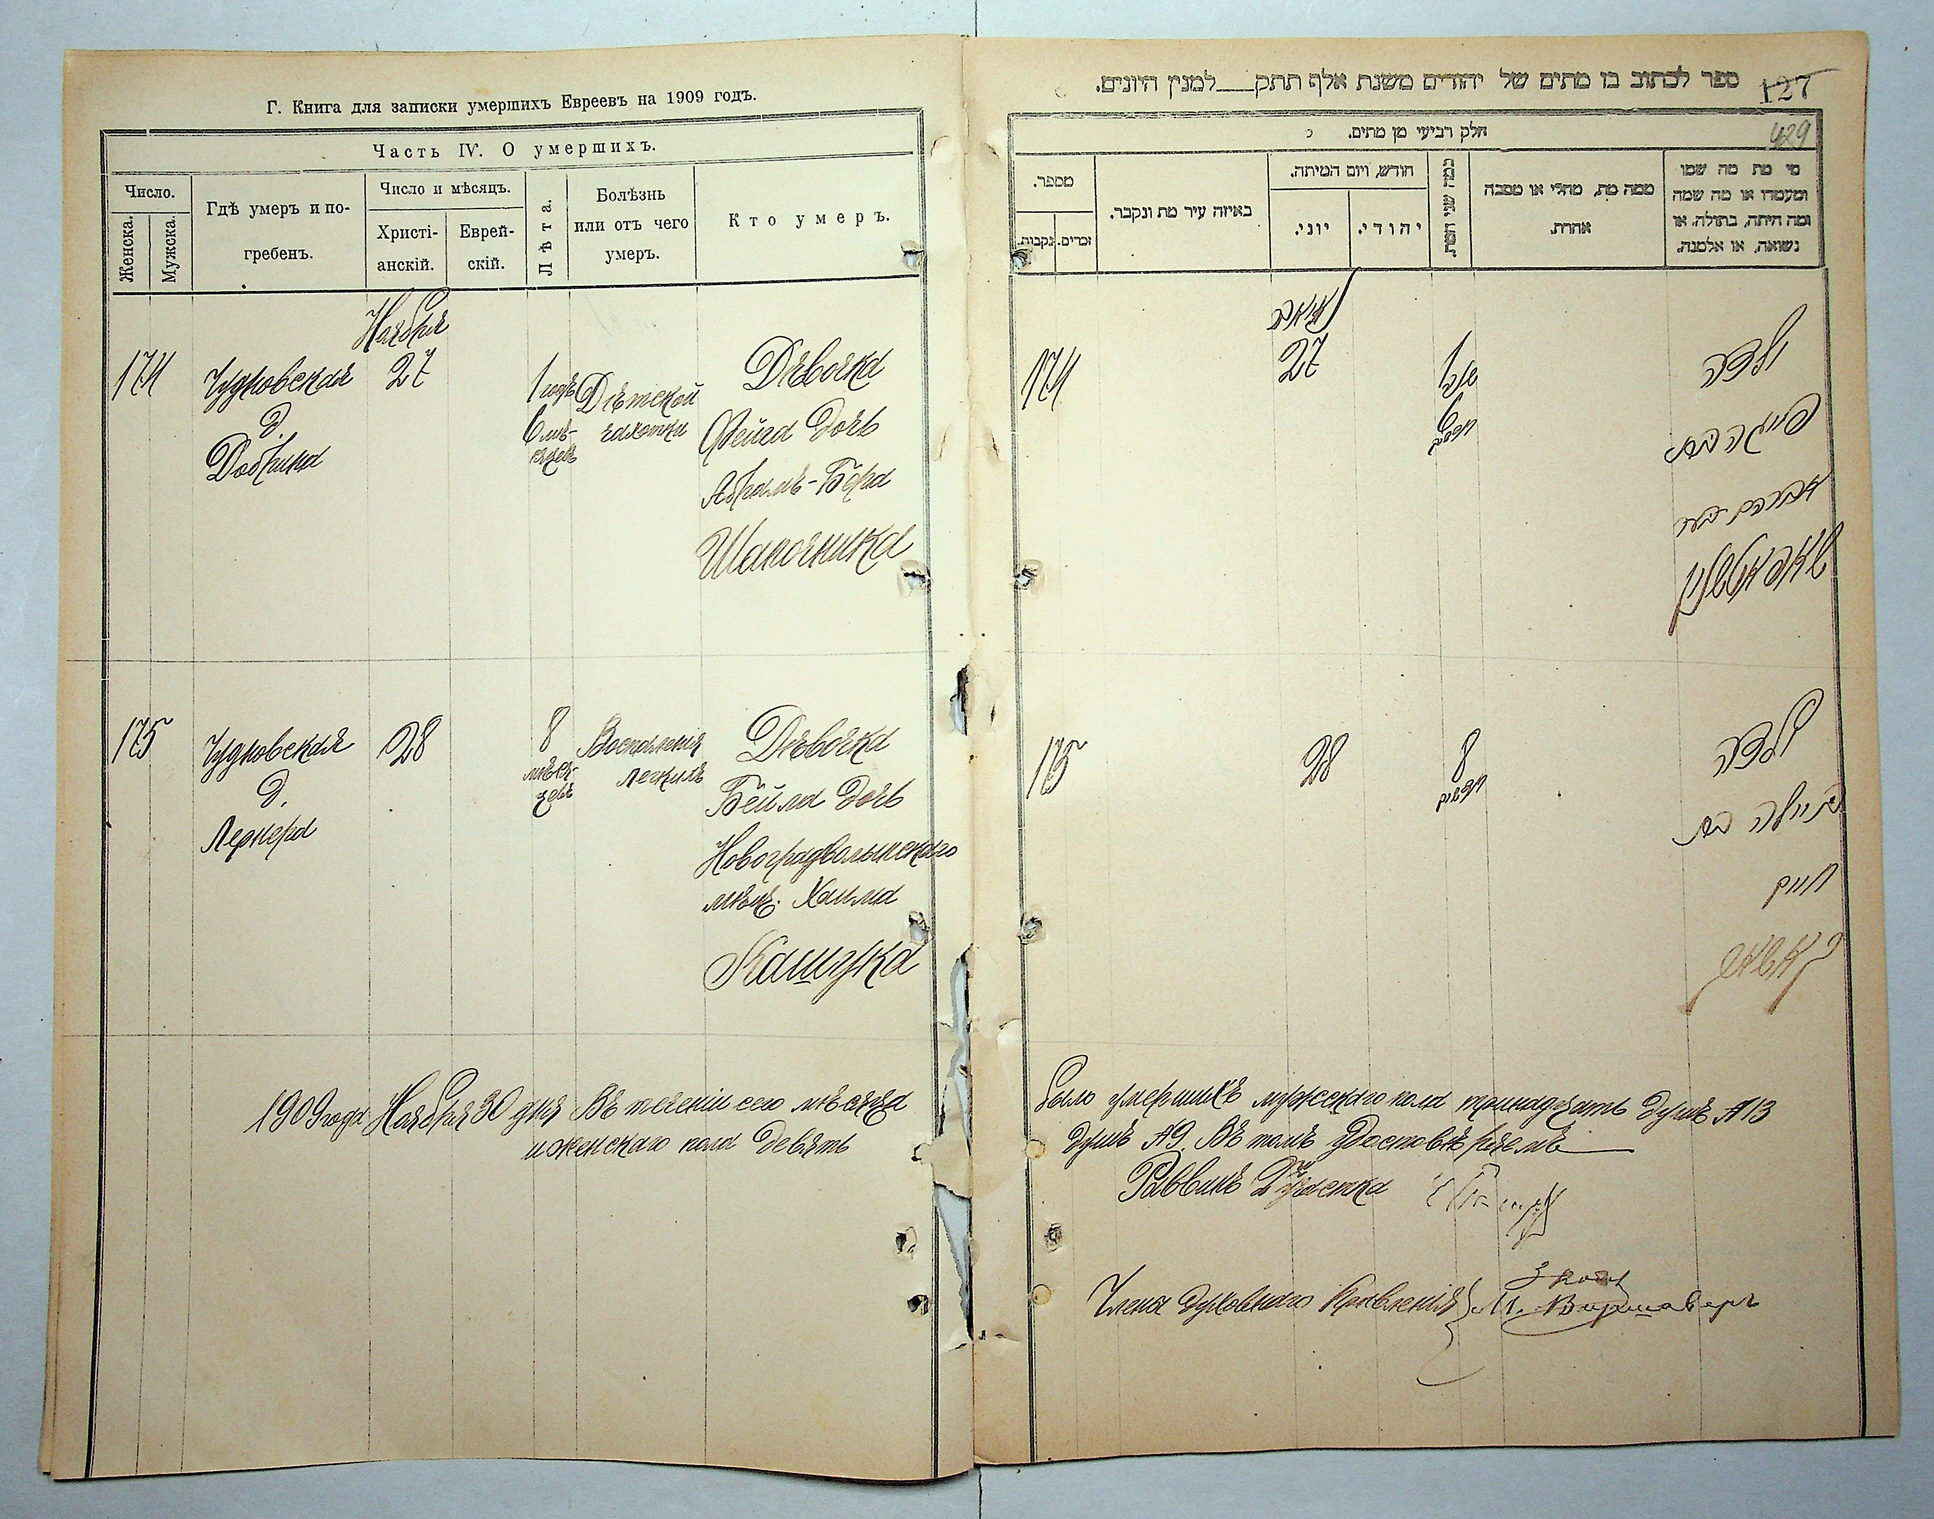 Г. Книга для записки умершихъ Евреевъ на 1909 годъ.
Часть IV. О умершихъ.
Число.
Женска.
Мужска.
Гдѣ умеръ и по-
гребенъ.
Число и мѣсяцъ.
Христі-
анскій.
Еврей-
скій.
Лѣта.
Болѣзнь
или отъ чего
умеръ.
Кто умеръ.
Ноября
174
Чудновская
д.
Добкина
27
1 годъ
6 мѣ-
сяцевъ
Дѣтской
чахотки
Дѣвочка
Фейга дочь
Абрамъ-Бера
Шапочника
175
Чудновская
д.
Лернера
28
8
мѣся-
цевъ
Воспаленія
легкихъ
Дѣвочка
Бейла дочь
Новоградволынскаго
мѣщ. Хаима
Кашука
1909 года Ноября 30 дня Въ теченіи сего мѣсяца
и женскаго пола девять
ספר לכתוב בו מתים של יהודים משנת אלף תתק___למנין היונים.
127
429
חלק רביעי מן מתים.
מספר.
נקבות.
זכרים.
באיזה עיר מת ונקבר.
חודש, ויום המיתה.
יוני.
יהודי.
כמה שני המת.
ממה מת, מחלי או מסבה
אחרת.
מי מת מה שמו
ומעמדו או מה שמה
ומה היתה, בתולה, או
נשואה, או אלמנה.
174
27
1
6
ילדה
פייגה בת
אברהם בער
175
28
8
ילדה
ביילה בת
חיים
было умершихъ мужескаго пола тринадцать душъ №13
душъ №9. Въ томъ удостовѣряемъ
Раввинъ
Члены духовнаго Правленія
М. Варшаверъ